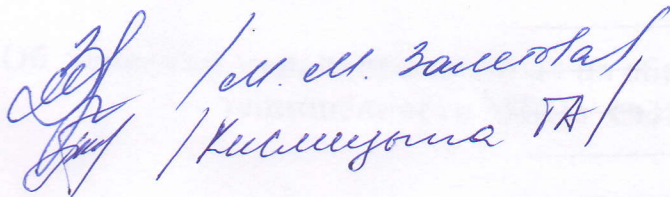 /М. М. Залетова/
/Кислицына ТА/